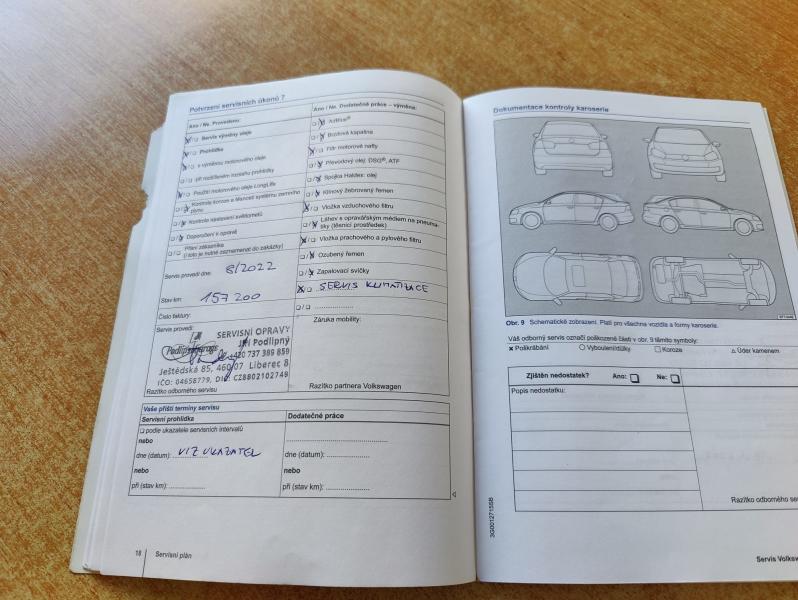 Potvrzení servisních úkonů 7
Ano / Ne. Provedeno:
Servis výměny oleje
Prohlídka
s výměnou motorového oleje
při rozšířeném rozsahu prohlídky
Použití motorového oleje LongLife
Kontrola koroze a těsnosti systému zemního
plynu
Kontrola nastavení světlometů
Doporučení k opravě
Přání zákazníka
(i toto je nutné zaznamenat do zakázky)
Servis provedl dne: 8/2022
Stav km: 157 200
Číslo faktury:
Servis provedl:
SERVISNÍ OPRAVY
Jiří Podlipný
+420 737 389 859
Ještědská 85, 460 07 Liberec 8
IČO: 04658779, DIČ: CZ8802102749
Razítko odborného servisu
Ano / Ne. Dodatečné práce – výměna:
AdBlue®
Brzdová kapalina
Filtr motorové nafty
Převodový olej: DSG®, ATF
Spojka Haldex: olej
Klínový žebrovaný řemen
Vložka vzduchového filtru
Láhev s opravářským médiem na pneuma-
tiky (těsnicí prostředek)
Vložka prachového a pylového filtru
Ozubený řemen
Zapalovací svíčky
SERVIS KLIMATIZACE
Záruka mobility:
Razítko partnera Volkswagen
Vaše příští termíny servisu
Servisní prohlídka
podle ukazatele servisních intervalů
nebo
dne (datum): VIZ UKAZATEL
nebo
při (stav km):
Dodatečné práce
nebo
dne (datum):
nebo
při (stav km):
18
Servisní plán
Dokumentace kontroly karoserie
Obr. 9 Schematické zobrazení. Platí pro všechna vozidla a formy karoserie.
Váš odborný servis označí poškozené části v obr. 9 těmito symboly:
× Poškrábání ○ Vybouleniny/důlky □ Koroze △ Úder kamenem
Zjištěn nedostatek? Ano: Ne:
Popis nedostatku:
Razítko odborného se
3G0012715SB
Servis Volksw